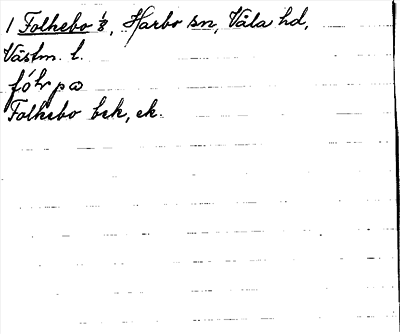 1 Folkebo 1/8, Harbo sn, Våla hd,
Västm. l.
Folkebo bek, ek.